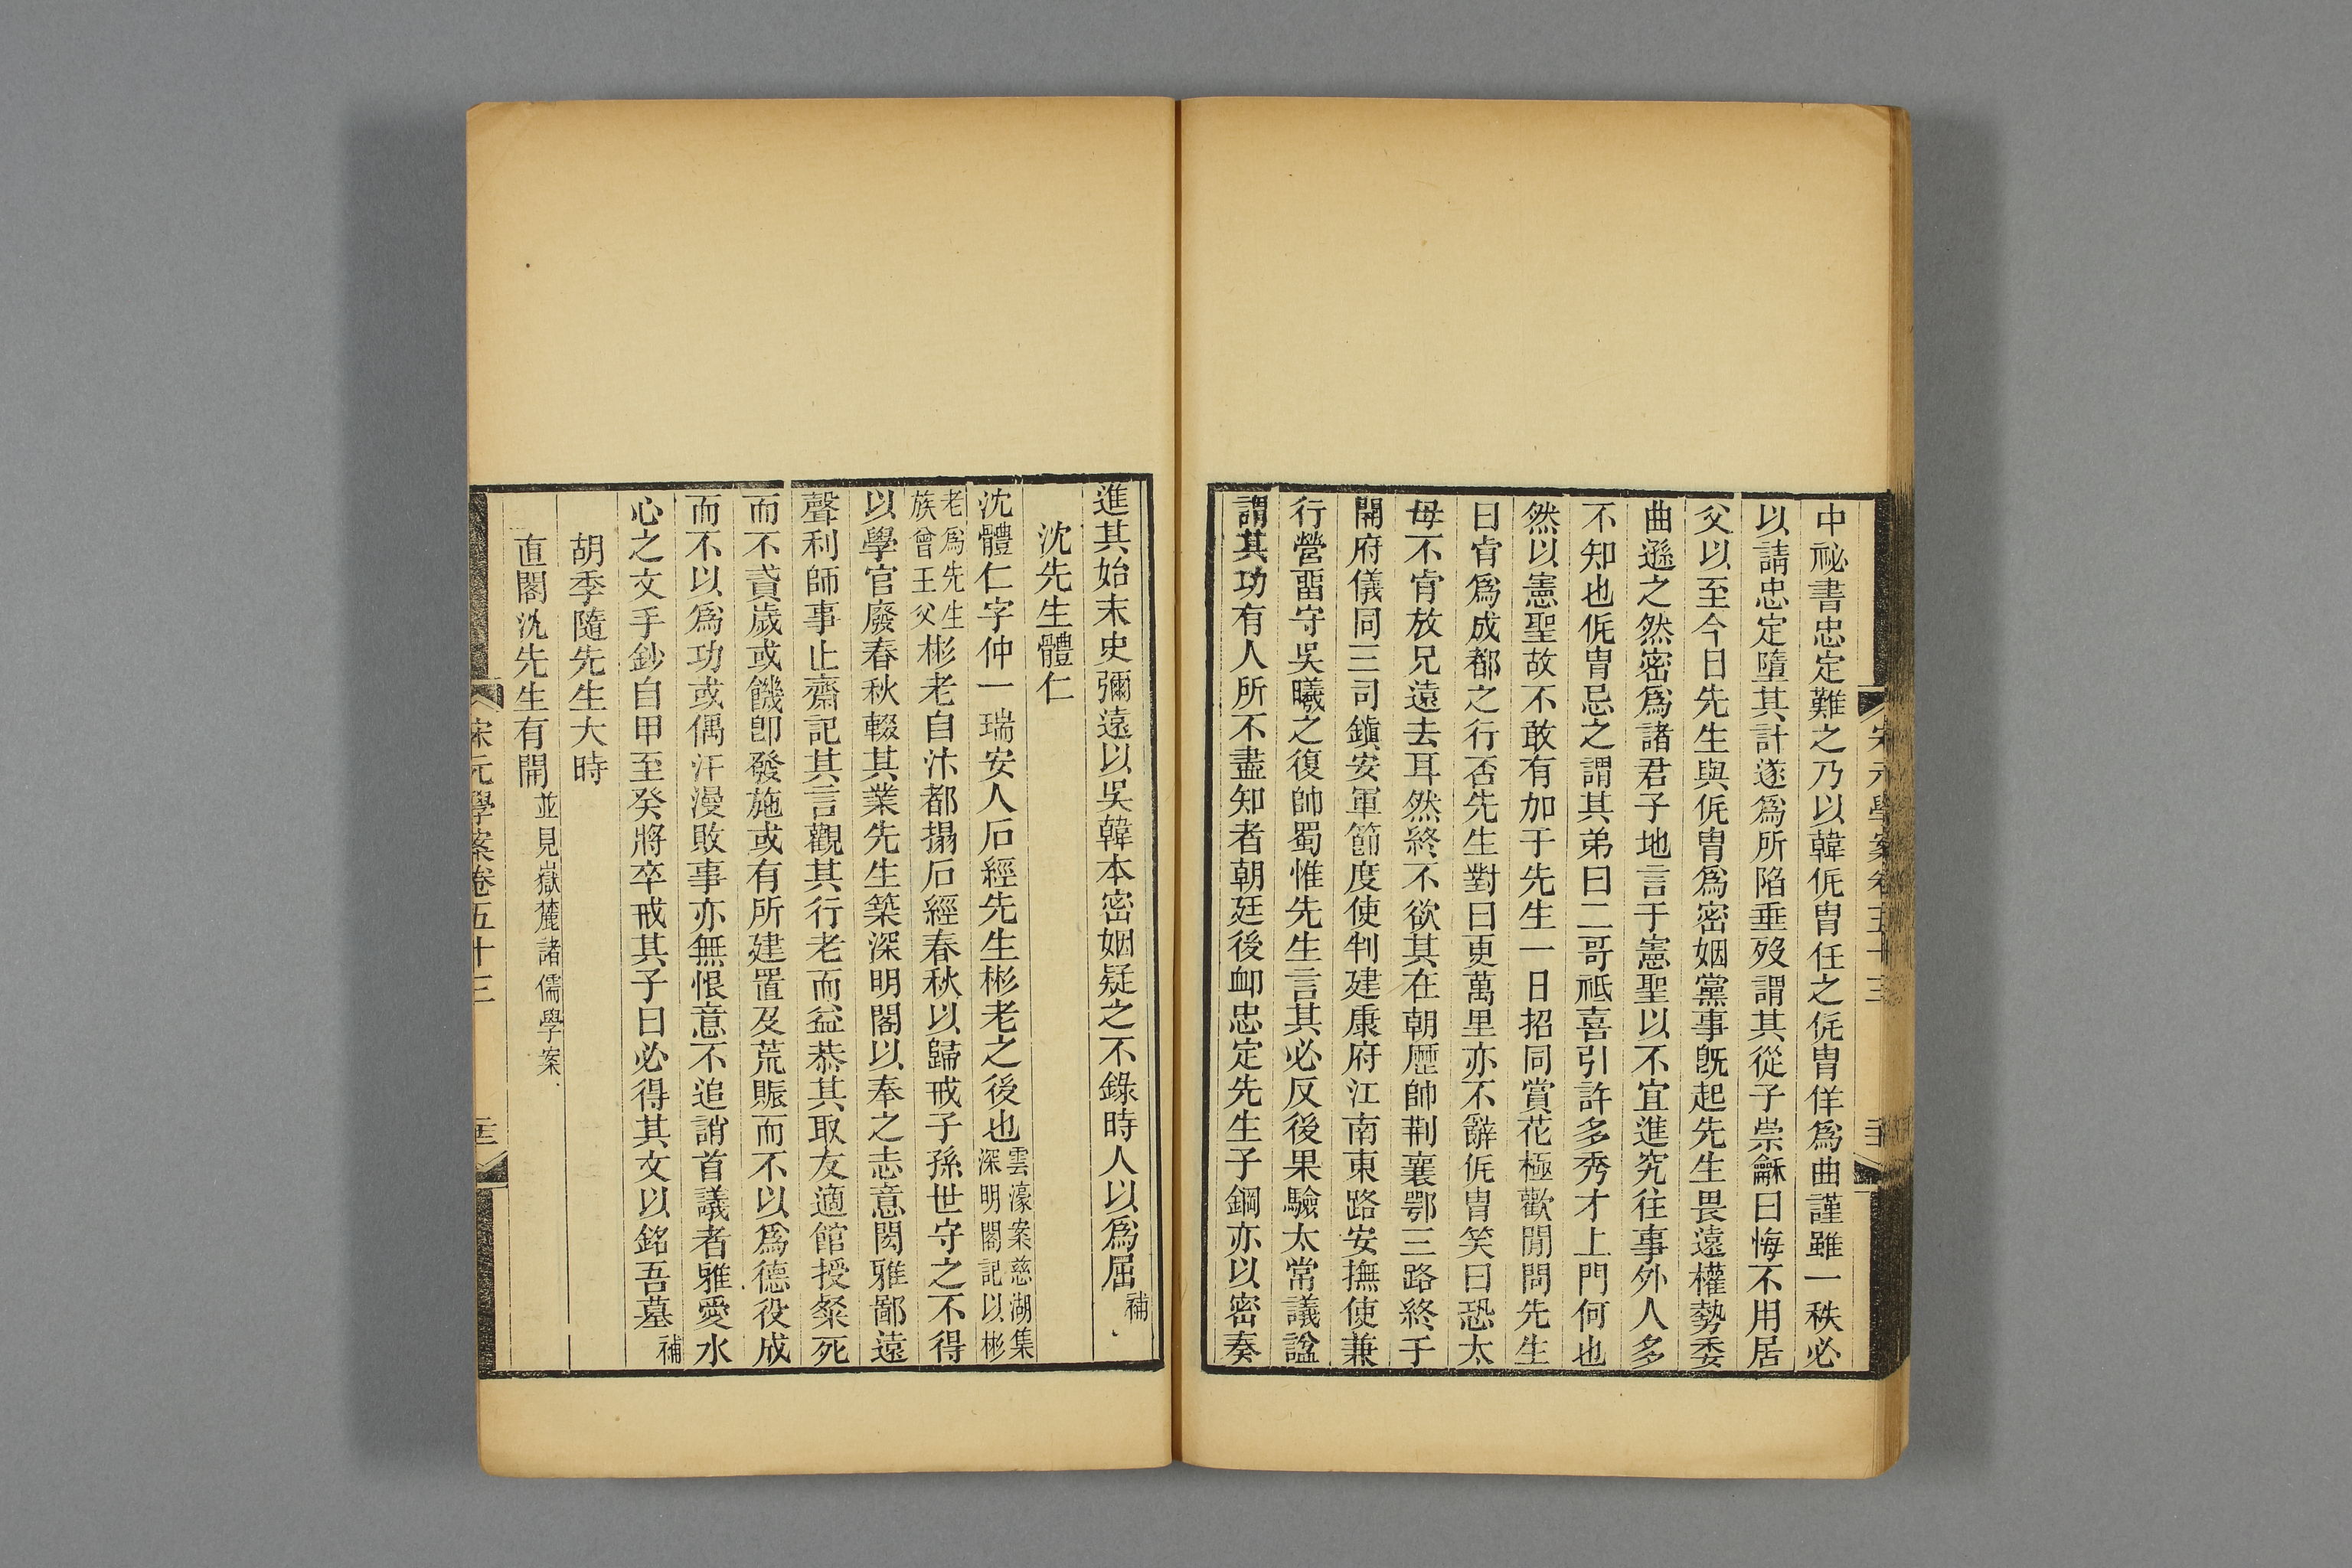 中祕書忠定難之乃以韓侂胄任之侂胄佯爲曲謹雖一秩必
以請忠定墮其計遂爲所陷垂歿謂其從子崇龢曰悔不用居
父以至今日先生與侂胄爲密姻黨事旣起先生畏遠權勢委
曲遜之然密爲諸君子地言于憲聖以不宜進究往事外人多
不知也侂胄忌之謂其弟曰二哥祗喜引許多秀才上門何也
然以憲聖故不敢有加于先生一日招同賞花極歡閒問先生
曰肯爲成都之行否先生對曰更萬里亦不辭侂胄笑曰恐太
母不肯放兄遠去耳然終不欲其在朝歷帥荆襄鄂三路終于
開府儀同三司鎭安軍節度使判建康府江南東路安撫使兼
行營畱守吳曦之復帥蜀惟先生言其必反後果驗太常議諡
謂其功有人所不盡知者朝廷後卹忠定先生子鋼亦以密奏
進其始末史彌遠以吳韓本密姻疑之不錄時人以爲屈補
沈先生體仁
沈體仁字仲一瑞安人石經先生彬老之後也雲濠案慈湖集深明閣記以彬
老爲先生族曾王父彬老自汴都搨石經春秋以歸戒子孫世守之不得
以學官廢春秋輟其業先生築深明閣以奉之志意閎雅鄙遠
聲利師事止齋記其言觀其行老而益恭其取友適館授粲死
而不貣歲或饑卽發施或有所建置及荒賑而不以爲德役成
而不以爲功或偶汗漫敗事亦無恨意不追誚首議者雅愛水
心之文手鈔自甲至癸將卒戒其子曰必得其文以銘吾墓補
胡季隨先生大時
直閣沈先生有開並見嶽麓諸儒學案
宋元學案卷五十三